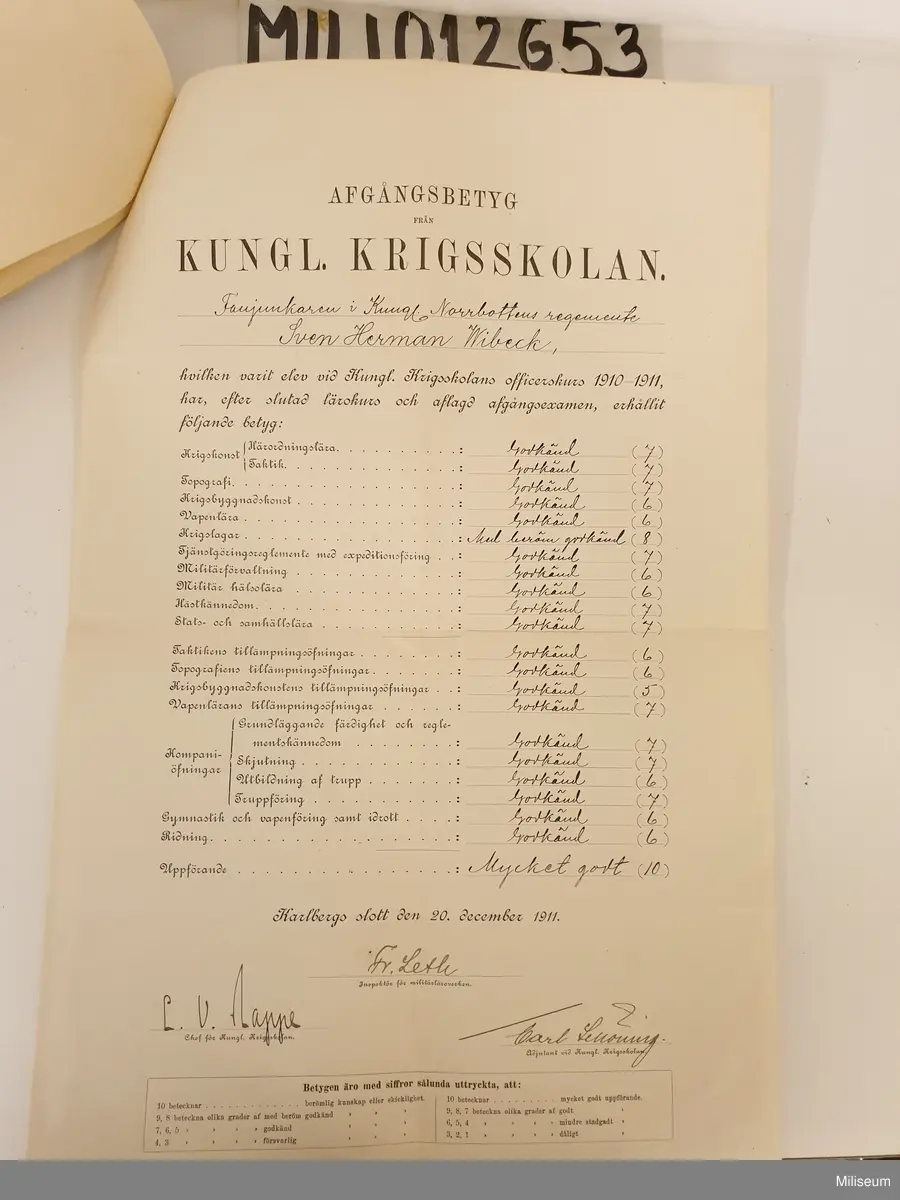 MILI012653
AFGÅNGSBETYG
FRÅN
KUNGL. KRIGSSKOLAN.
Fanjunkaren i Kungl. Norrbottens regemente
Sven Herman Wibeck,
hvilken varit elev vid Kungl. Krigsskolans officerskurs 1910-1911,
har, efter slutad lärokurs och aflagd afgångsexamen, erhållit
följande betyg:
Krigskonst
Härordningslära. . . . . . . . . . : Godkänd (7)
Taktik. . . . . . . . . . . . . . : Godkänd (7)
Topografi. . . . . . . . . . . . . : Godkänd (7)
Krigsbyggnadskonst . . . . . . . . : Godkänd (6)
Vapenlära . . . . . . . . . . . . : Godkänd (6)
Krigslagar . . . . . . . . . . . . : Med beröm godkänd (8)
Tjänstgöringsreglemente med expeditionsföring . . : Godkänd (7)
Militärförvaltning . . . . . . . . : Godkänd (6)
Militär hälsolära . . . . . . . . : Godkänd (6)
Hästkännedom. . . . . . . . . . . : Godkänd (7)
Stats- och samhällslära . . . . . . : Godkänd (7)
Taktikens tillämpningsöfningar . . . . : Godkänd (6)
Topografiens tillämpningsöfningar. . . . : Godkänd (6)
Krigsbyggnadskonstens tillämpningsöfningar . . : Godkänd (5)
Vapenlärans tillämpningsöfningar . . . . : Godkänd (7)
Kompani-
öfningar
Grundläggande färdighet och regle-
mentskännedom . . . . . . . : Godkänd (7)
Skjutning . . . . . . . . . . : Godkänd (7)
Utbildning af trupp . . . . . . : Godkänd (6)
Truppföring . . . . . . . . . : Godkänd (7)
Gymnastik och vapenföring samt idrott . . . . : Godkänd (6)
Ridning. . . . . . . . . . . . . : Godkänd (6)
Uppförande . . . . . . . . . . . : Mycket godt (10)
Karlbergs slott den 20. december 1911.
Fr. Leth
Inspektör för militärläroverken.
L. V. Nappe
Chef för Kungl. Krigsskolan.
Carl Schöning.
Adjutant vid Kungl. Krigsskolan.
Betygen äro med siffror sålunda uttryckta, att:
10 betecknar . . . . . . . . . . berömlig kunskap eller skicklighet.
9, 8 beteckna olika grader af med beröm godkänd » »
7, 6, 5 » » » » godkänd » »
4, 3 » » » » försvarlig » »
10 betecknar . . . . . . . . mycket godt uppförande.
9, 8, 7 beteckna olika grader af godt »
6, 5, 4 » » » » mindre stadgadt »
3, 2, 1 » » » » dåligt »
Miliseum